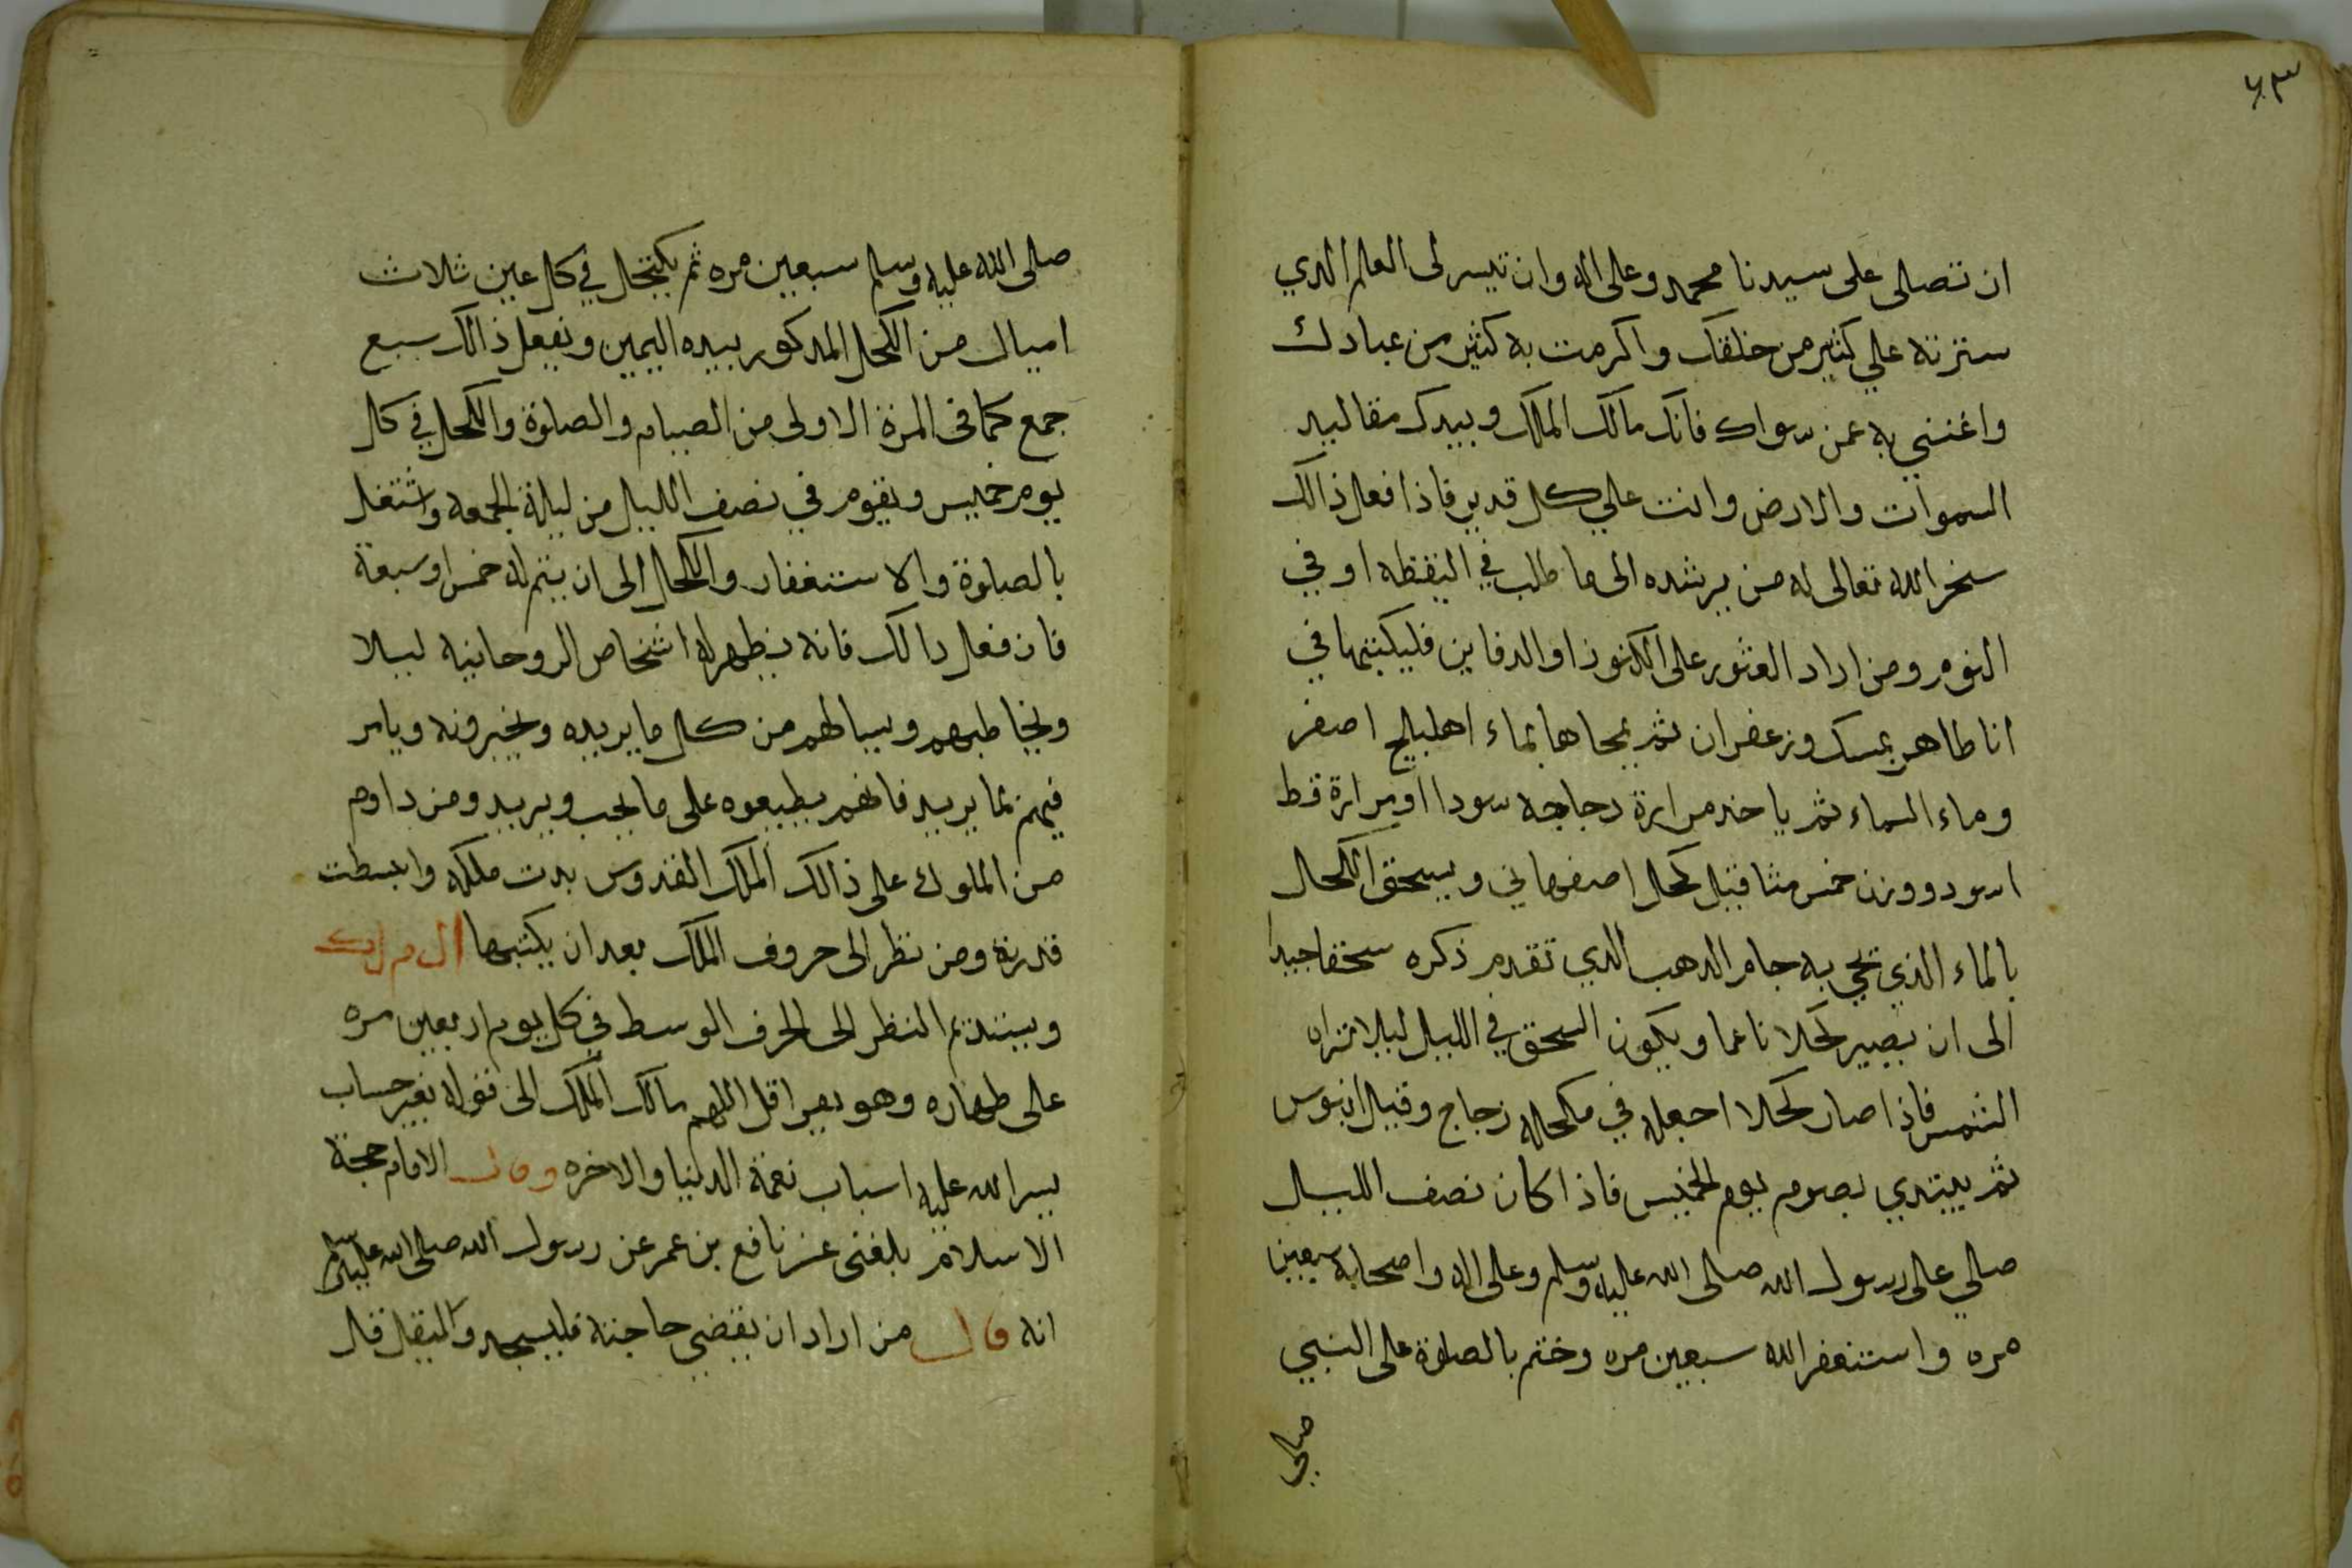 ٦٣
ان تصلى على سيدنا محمد وعلى اله وان تيسر لى العلم الدي
سترته علي كثير من خلقك واكرمت به كثير من عبادك
واغنني به عمن سواك فانك مالك الملك وبيدك مقاليد
السموات والارض وانت علي كل قدير فاذا فعل ذالك
سخر الله تعالى له من يرشده الى ما طلب في اليقظه او في
النوم ومن اراد العثور على الكنوز او الدفاين فليكتبها في
انا طاهر بمسك وزعفران ثم يمحاها بماء اهليلج اصفر
وماء السماء ثم ياخد مرارة دجاجه سودا او مرارة قط
اسود ووزن خمس مثاقيل كحل اصفهاني ويسحق الكحل
بالماء الذي محي به جام الدهب الدي تقدم ذكره سحقا جيدا
الى ان يصير كحلا ناعما ويكون السحق في الليل ليلا تراه
الشمس فاذا صار كحلا اجعله في مكحله زجاج وقيل ابنوس
ثم يبتدي بصوم يوم الخميس فاذا كان نصف الليل
صلي على رسول الله صلى الله عليه وسلم وعلى اله واصحابه سبعين
مره واستغفر الله سبعين مره وختم بالصلوة على النبي
صلي
صلى الله عليه وسلم سبعين مره ثم يكتحل في كل عين ثلاث
اميال من الكحل المدكور بيده اليمين ويفعل ذالك سبع
جمع كما فى المرة الاولى من الصيام والصلوة والكحل في كل
يوم خميس ويقوم في نصف الليل من ليلة الجمعه واشتغل
بالصلوة والاستغفار والكحل الى ان يتم له خمس او سبعة
فان فعل دالك فانه يظهر له اشخاص الروحانيه ليلا
ويخاطبهم ويسالهم من كل ما يريده ويخبرونه ويامر
فيهم بما يريد فانهم يطيعوه على ما يحب ويريد ومن داوم
من الملوك على ذالك الملك القدوس بدت ملكه وانبسطت
قدرته ومن نظر الى حروف الملك بعد ان يكتبها ال م ل ك
ويستديم النظر الى الحرف الوسط في كل يوم اربعين مره
على طهاره وهو يقرا قل اللهم مالك الملك الى قوله بغير حساب
يسر الله عليه اسباب نعمة الدنيا والاخره وقال الامام حجة
الاسلام بلغنى عن نافع بن عمر عن رسول الله صلى الله عليه وسلم
انه قال من اراد ان يقضي حاجته فليسجد وليقل قال